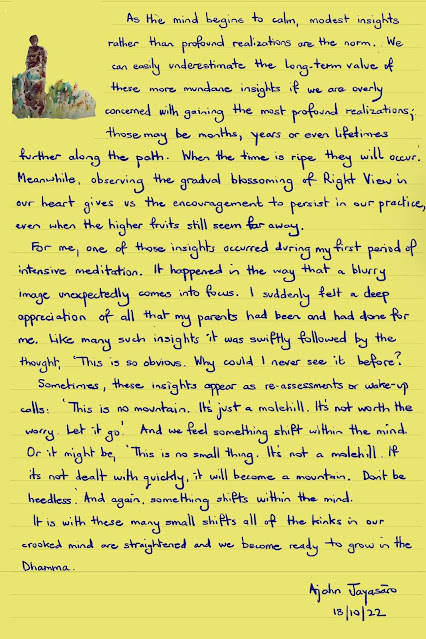 As the mind begins to calm, modest insights
rather than profound realizations are the norm. We
can easily underestimate the long-term value of
these more mundane insights if we are overly
concerned with gaining the most profound realizations;
those may be months, years or even lifetimes
further along the path. When the time is ripe they will occur.
Meanwhile, observing the gradual blossoming of Right View in
our heart gives us the encouragement to persist in our practice,
even when the higher fruits still seem far away.
For me, one of those insights occurred during my first period of
intensive meditation. It happened in the way that a blurry
image unexpectedly comes into focus. I suddenly felt a deep
appreciation of all that my parents had been and had done for
me. Like many such insights it was swiftly followed by the
thought, 'This is so obvious. Why could I never see it before?'
Sometimes, these insights appear as re-assessments or wake-up
calls: 'This is no mountain. It's just a molehill. It's not worth the
worry. Let it go.' And we feel something shift within the mind.
Or it might be, 'This is no small thing. It's not a molehill. If
its not dealt with quickly, it will become a mountain. Don't be
heedless.' And again, something shifts within the mind.
It is with these many small shifts all of the kinks in our
crooked mind are straightened and we become ready to grow in the
Dhamma.
Ajahn Jayasāro
13/10/22